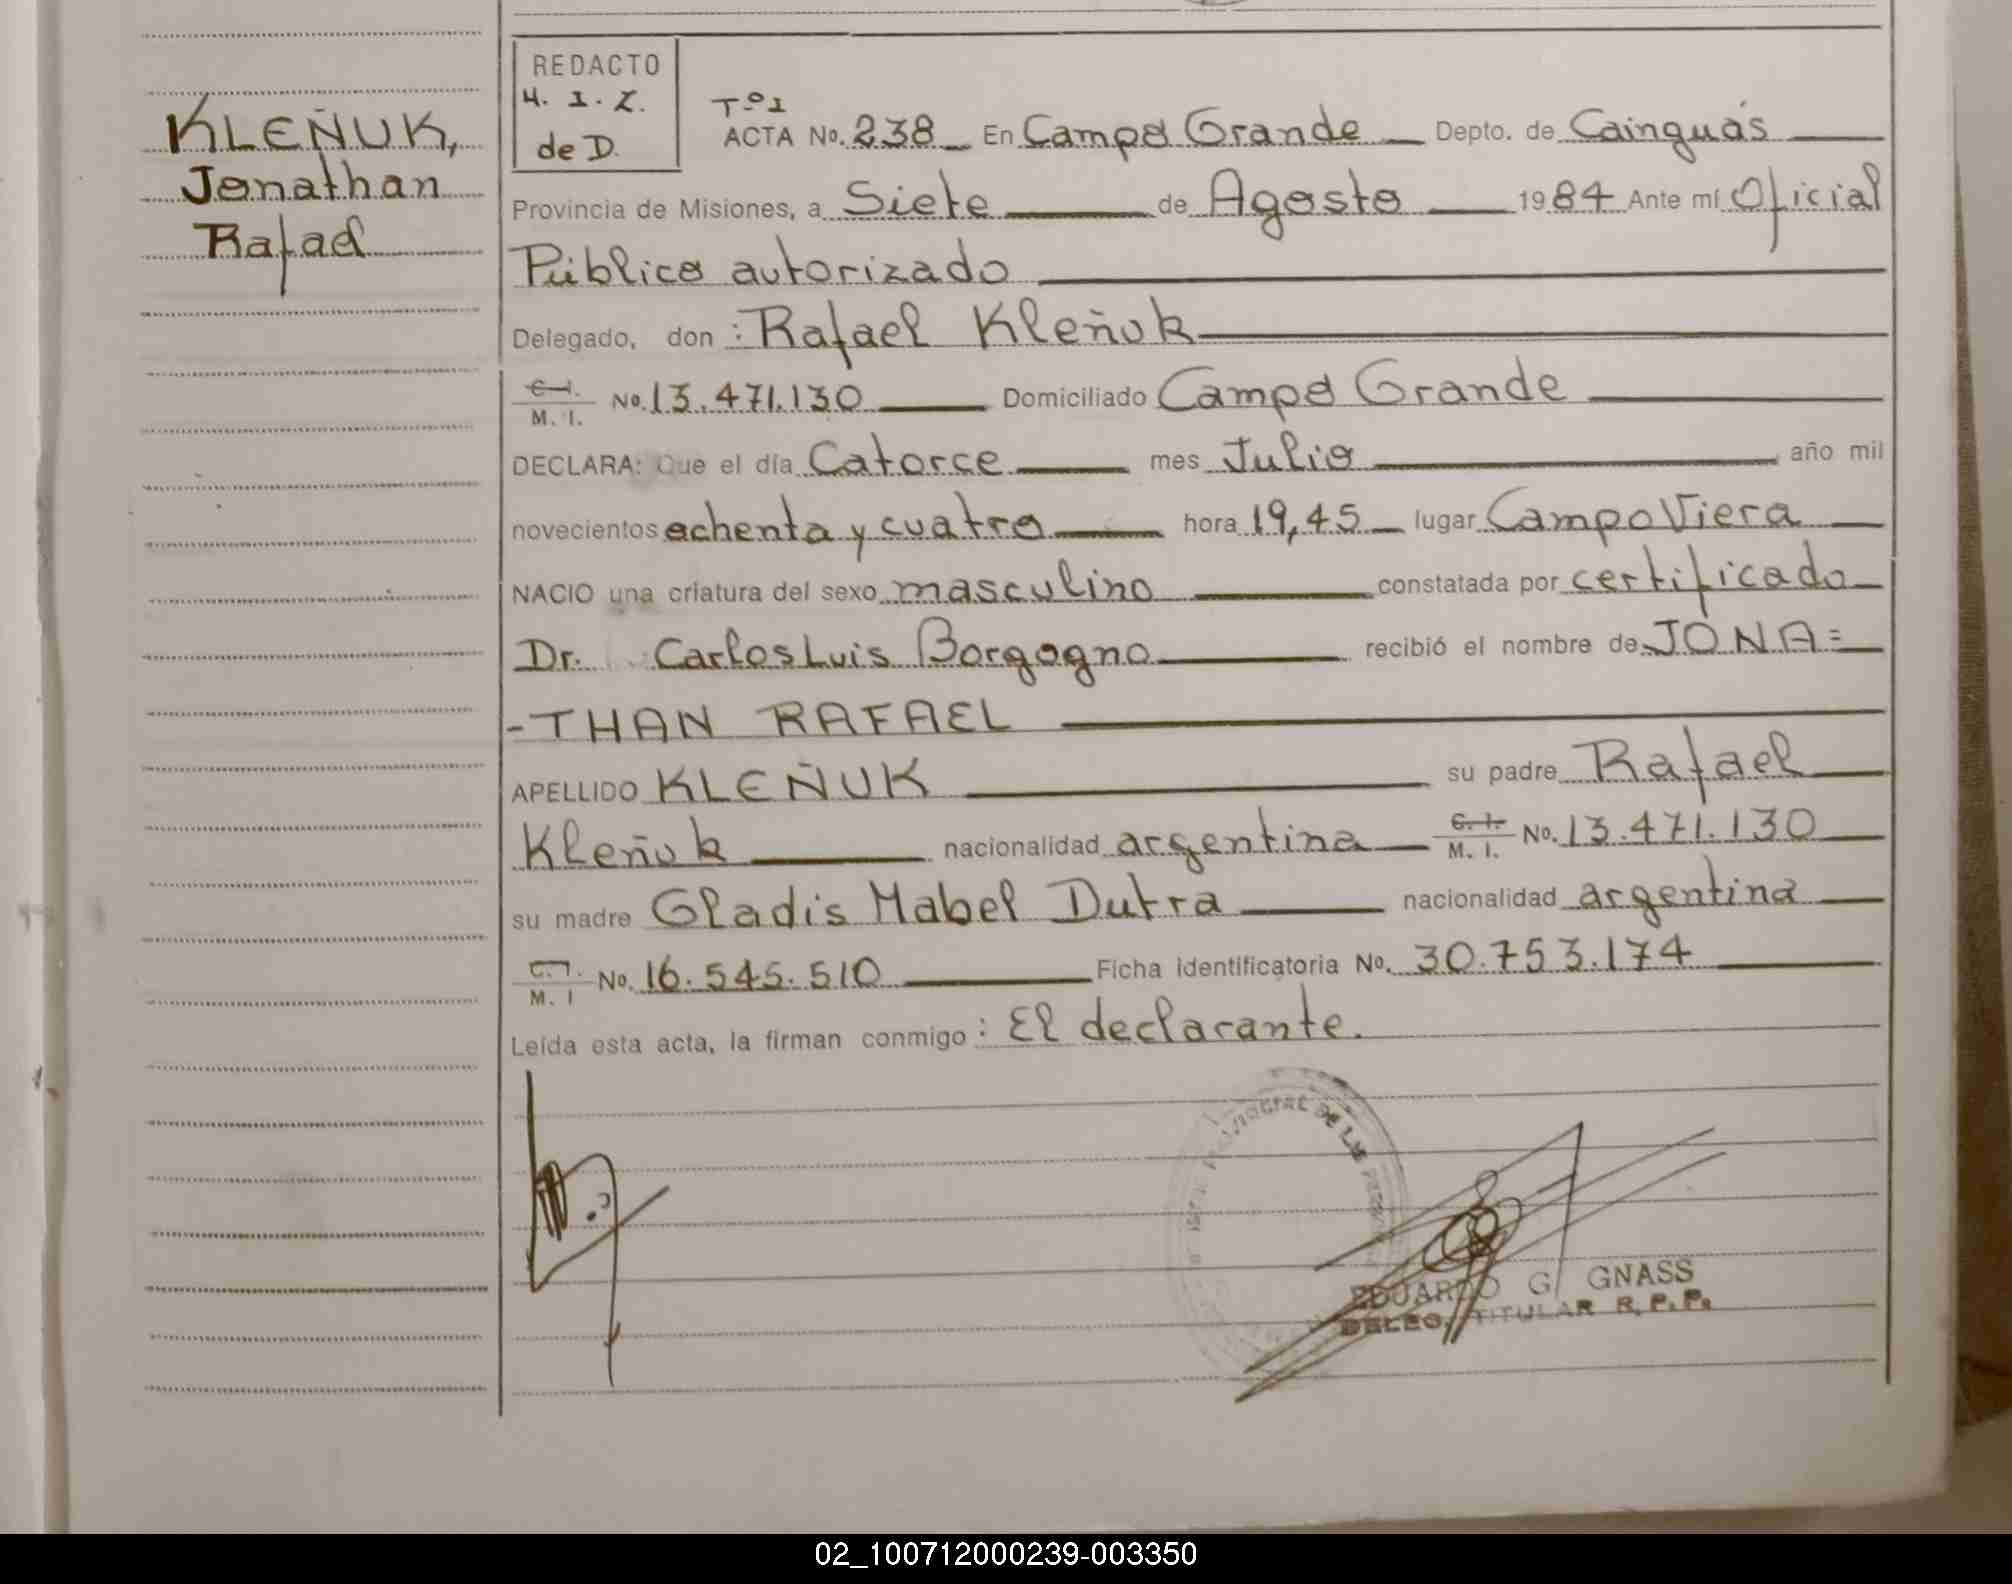 KLEÑUK,
Jonathan
Rafael
REDACTO
H. I. Z.
de D.
Tº1
ACTA No. 238 En Campo Grande Depto. de Cainguás
Provincia de Misiones, a Siete de Agosto 1984 Ante mí Oficial
Público autorizado
Delegado, don : Rafael Kleñuk
C. I. M. I. No. 13.471.130 Domiciliado Campo Grande
DECLARA: Que el día Catorce mes Julio año mil
novecientos ochenta y cuatro hora 19,45 lugar Campo Viera
NACIO una criatura del sexo masculino constatada por certificado
Dr. Carlos Luis Borgogno recibió el nombre de JONA=
-THAN RAFAEL
APELLIDO KLEÑUK su padre Rafael
Kleñuk nacionalidad argentina C. I. M. I. No. 13.471.130
su madre Gladis Mabel Dutra nacionalidad argentina
C. I. M. I No. 16.545.510 Ficha identificatoria No. 30.753.174
Leída esta acta, la firman conmigo : El declarante.
PROVINCIAL DE LAS
EDUARDO G. GNASS
DELEG. TITULAR R.P.P.
02_100712000239-003350